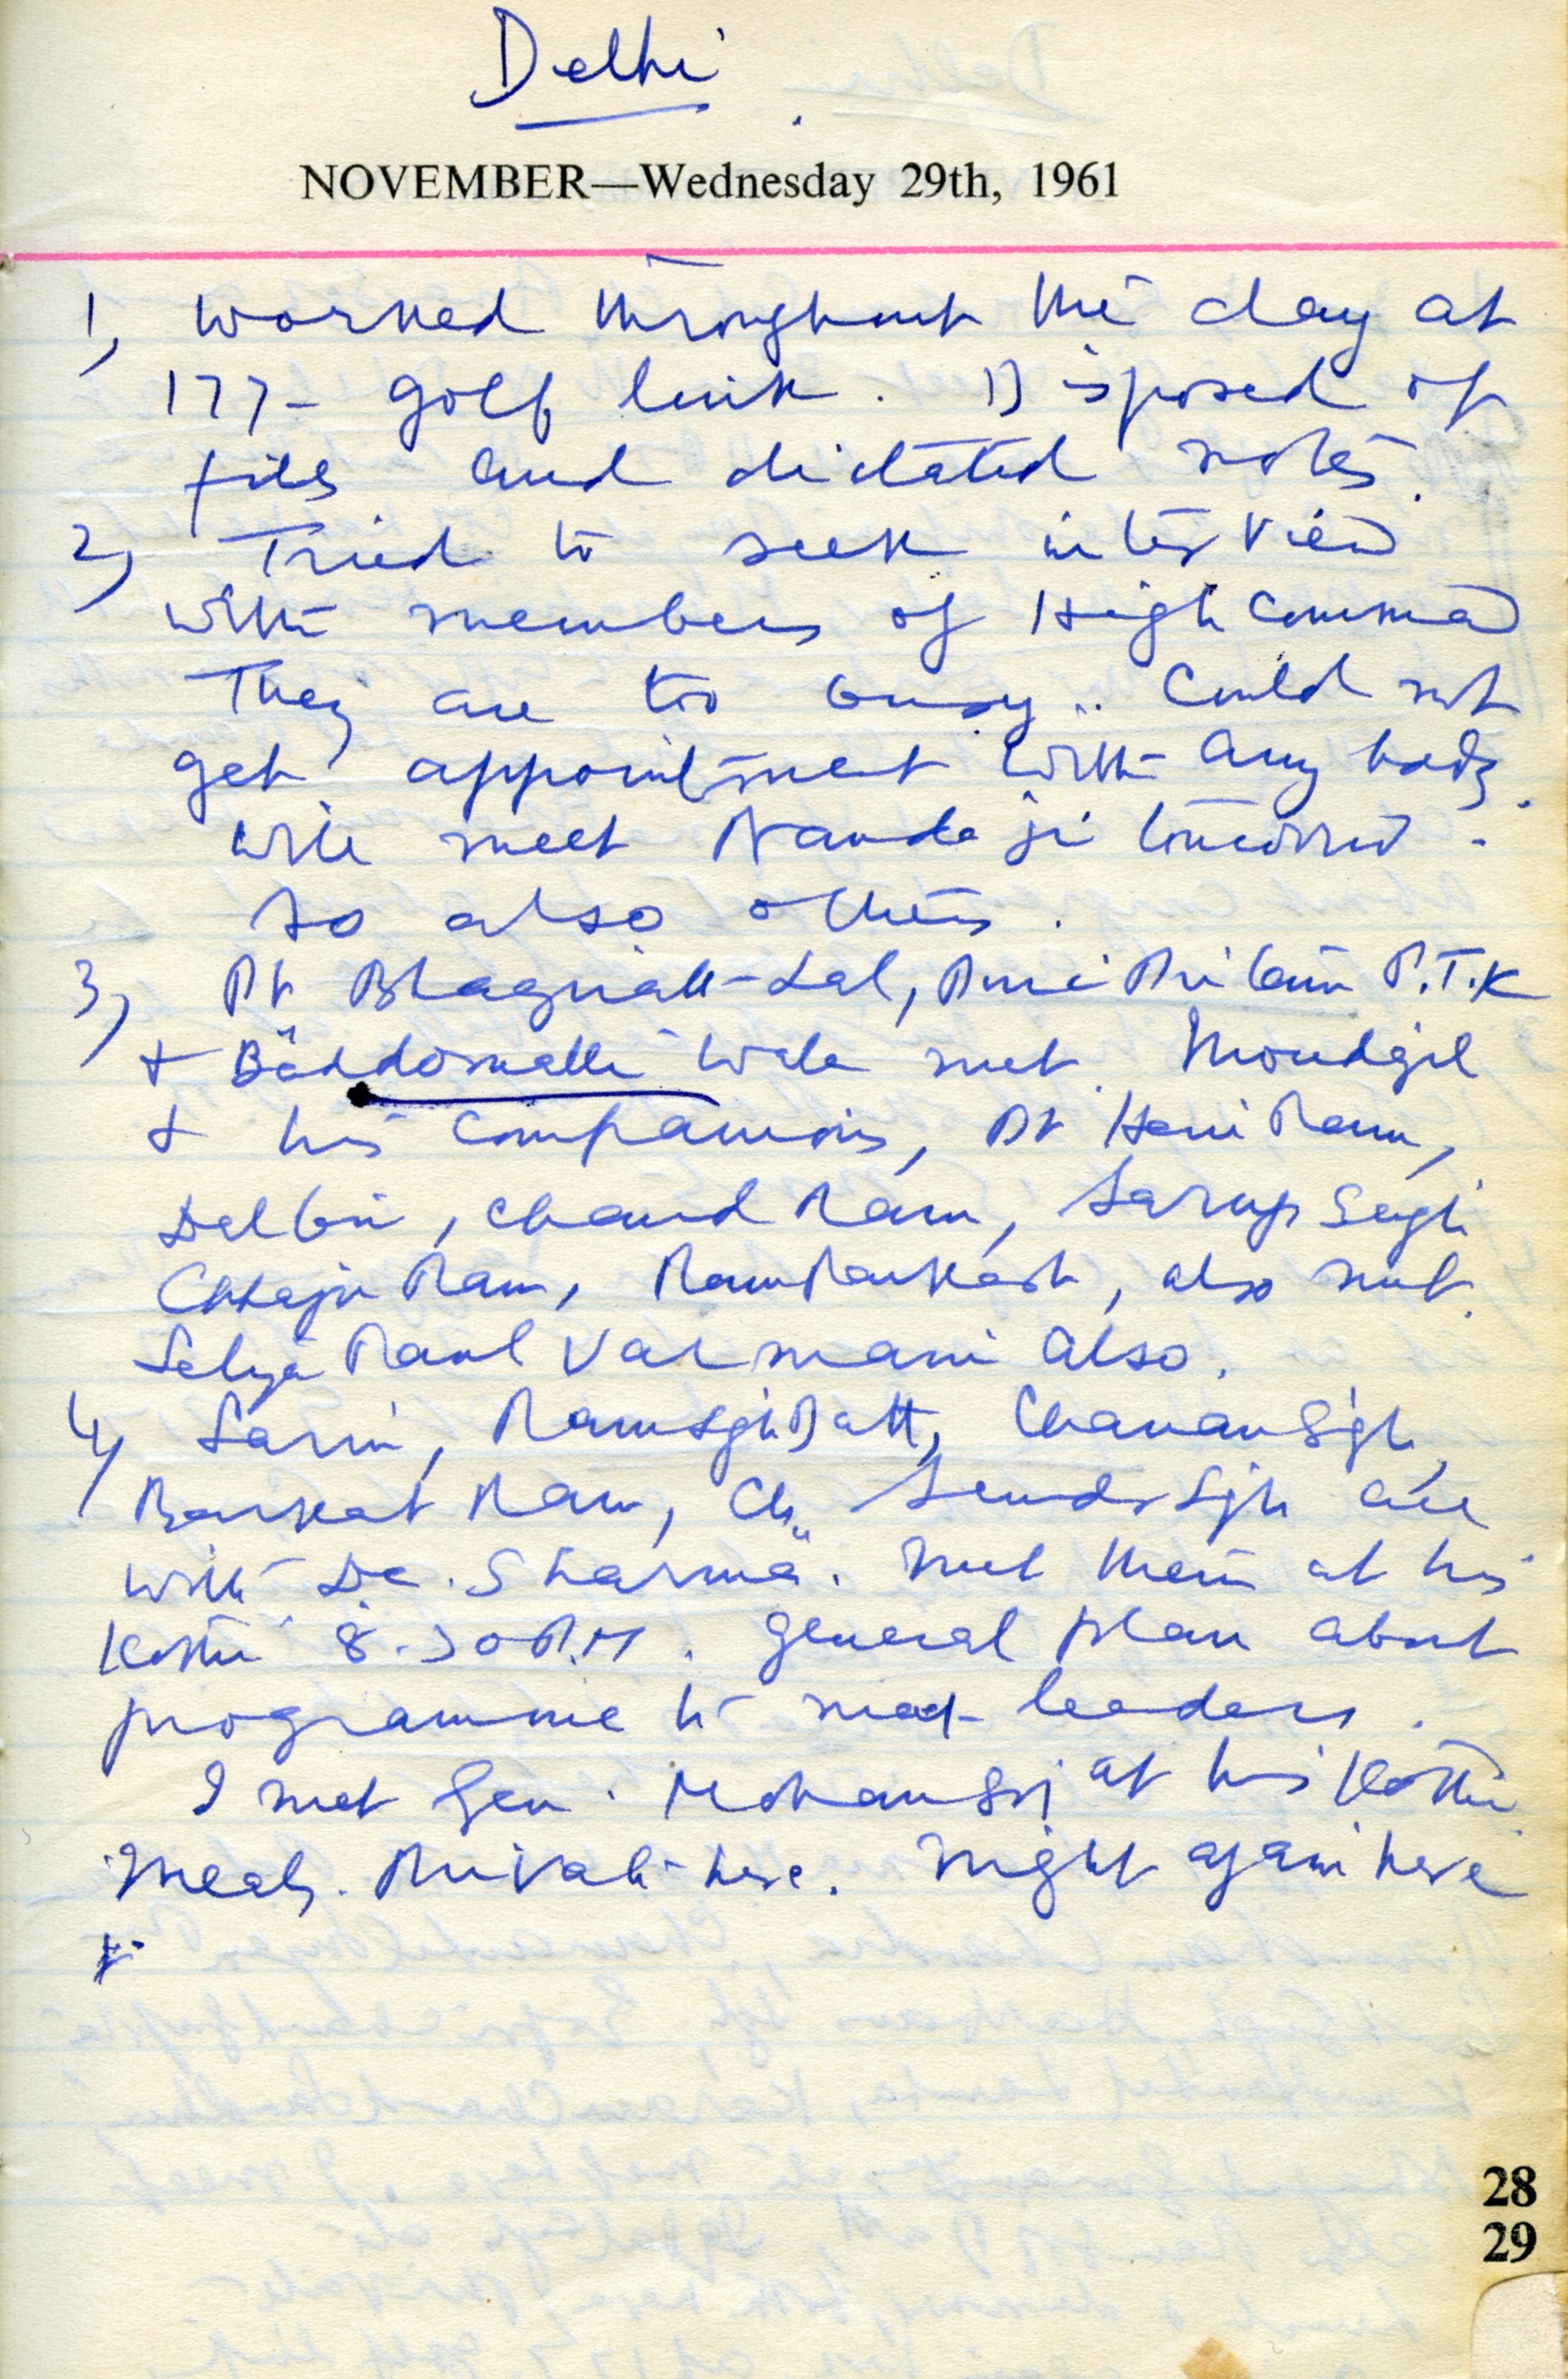 Delhi
NOVEMBER—Wednesday 29th, 1961
1, worked throughout the day at
177- golf link. Disposed of
files and dictated notes.
2, Tried to seek interview
with members of High Command
They are too busy.. Could not
get appointment with any body.
will meet Nanda ji tomorrow.
So also others.
3, Pt Bhagirath Lal, P.T.K
+ Baddomalli wala met. Moudgil
+ his companions, Pt Hari Ram,
Dalbir, Chand Ram, Sarup Singh
Chhaju Ram, Ram Parkash, also met.
also.
4, Sarin, Ram Sgh Datt, Chanan Sigh,
Barkat Ram, Ch. Sunder Sgh are
with De. Sharma. met them at his
Kothi 8.30 P.M. general plan about
programme to meet leaders.
I met Gen. Mohan at his Kothi
Meals. Private here. Night again here
28
29